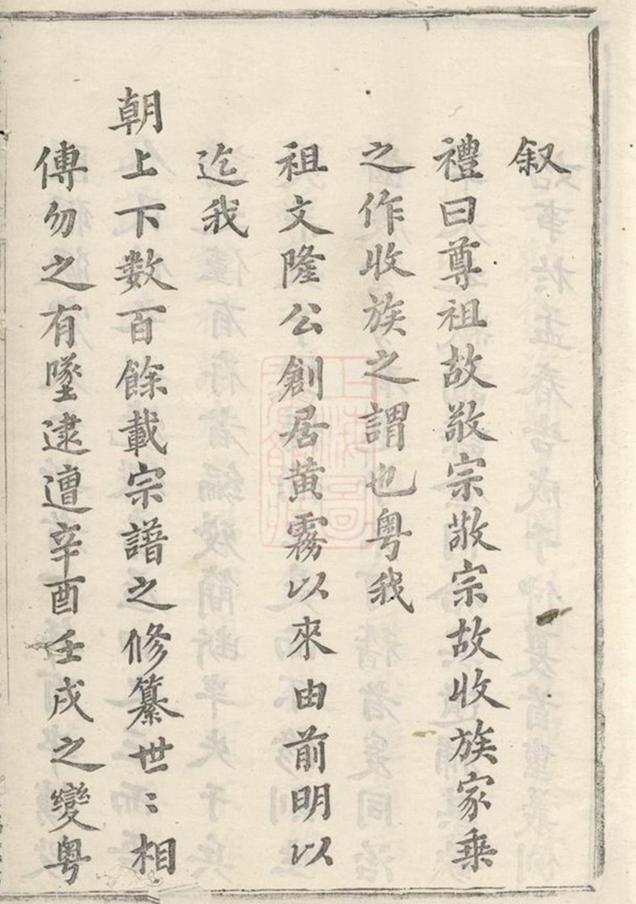 叙
禮曰尊祖故敬宗敬宗故收族家乗
之作收族之謂也粤我
祖文隆公創居黄霧以來由前明以
迄我
朝上下數百餘載宗譜之修纂世〻相
傳勿之有墜逮遭辛酉壬戌之變粤